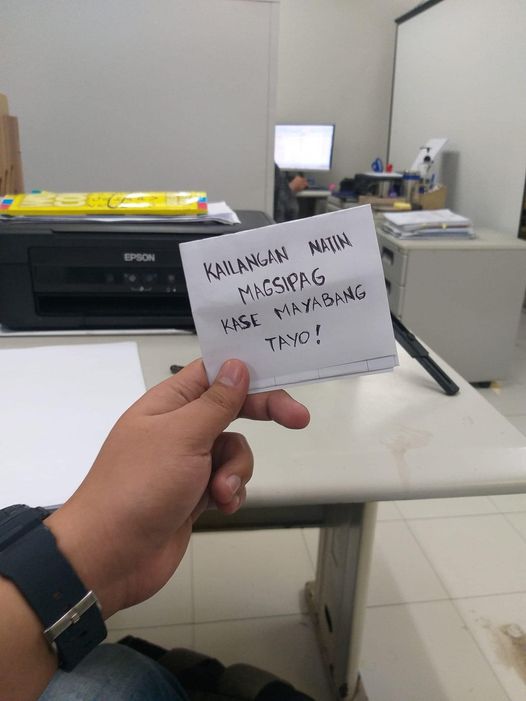 EPSON
KAILANGAN NATIN
MAGSIPAG
KASE MAYABANG
TAYO!